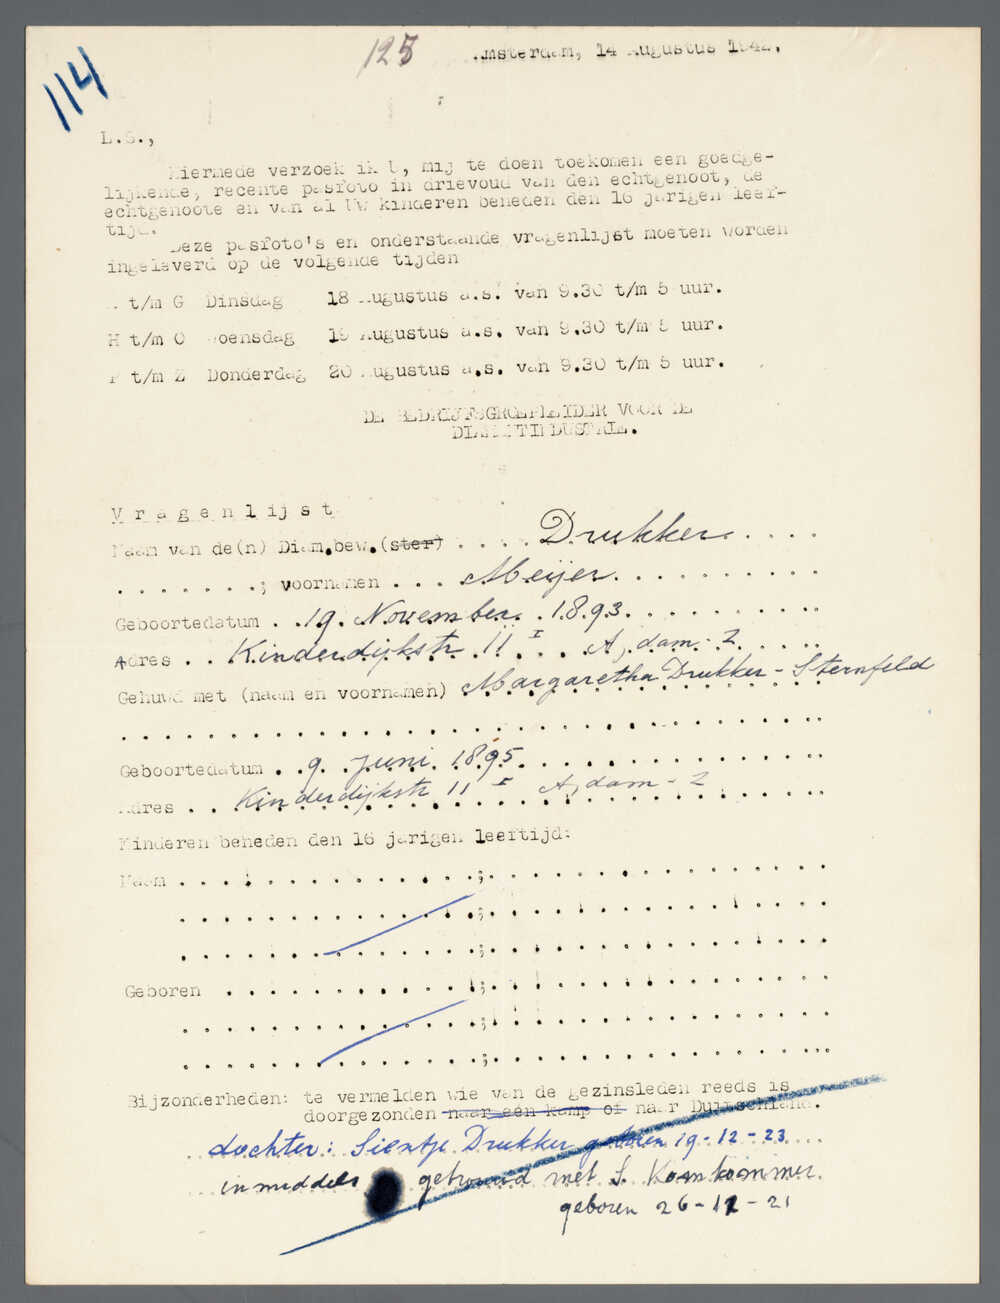 114
125
Amsterdam, 14 Augustus 1942.
L.S.,
Hiermede verzoek ik U, mij te doen toekomen een goedge-
lijkende, recente pasfoto in drievoud van den echtgenoot, de
echtgenoote en van al Uw kinderen beneden den 16 jarigen leef-
tijd.
Deze pasfoto's en onderstaande vragenlijst moeten worden
ingeleverd op de volgende tijden
A t/m G Dinsdag 18 Augustus a.s. van 9.30 t/m 5 uur.
H t/m O Woensdag 19 Augustus a.s. van 9.30 t/m 5 uur.
P t/m Z Donderdag 20 Augustus a.s. van 9.30 t/m 5 uur.
DE BEDRIJFSGROEPLEIDER VOOR DE
DIAMANTINDUSTRIE.
Vragenlijst
Naam van de(n) Diam.bew.(ster) .... Drukker ....
.......; voornamen ... Meijer .........
Geboortedatum .. 19 November 1893 .......
Adres .. Kinderdijkstr 11 I ... A,dam-Z .....
Gehuwd met (naam en voornamen) Margaretha Drukker - Sternfeld
Geboortedatum .. 9 Juni 1895 ..........
Adres .. Kinderdijkstr 11 I A,dam-Z
Kinderen beneden den 16 jarigen leeftijd:
Naam ...............;................
...............;................
...............;................
Geboren ...............;................
...............;................
...............;................
Bijzonderheden: te vermelden wie van de gezinsleden reeds is
doorgezonden naar een kamp of naar Duitschland.
dochter: Sientje Drukker geboren 19-12-23
inmiddels getrouwd met S. Komkommer
geboren 26-12-21